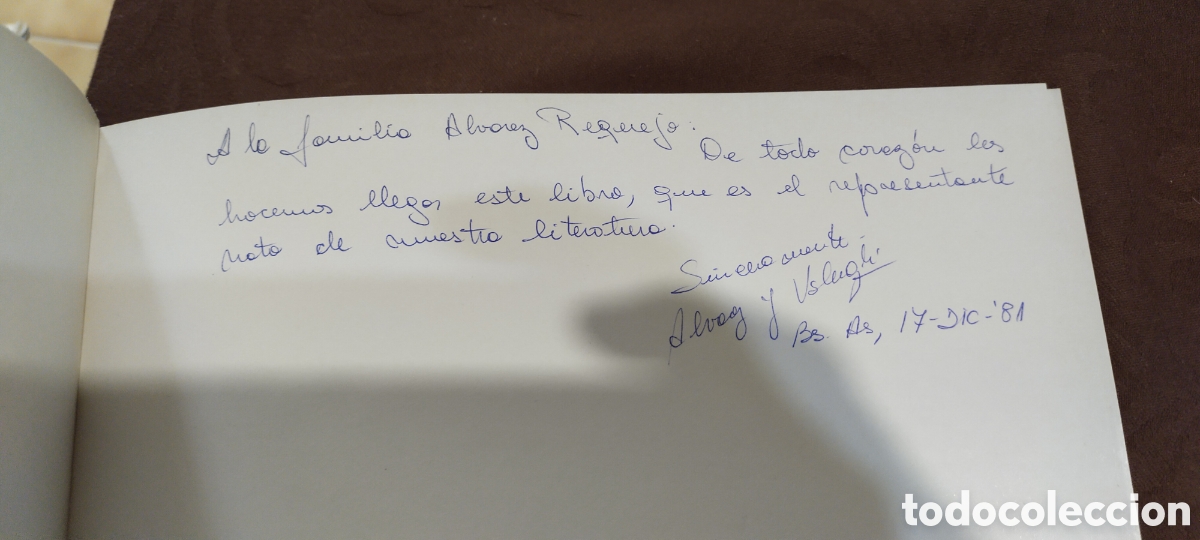 A la familia Alvarez Requejo:
De todo corazón les
hacemos llegar este libro, que es el representante
nato de nuestra literatura.
Sinceramente.
Alvarez y
Bs. As, 17-DIC-'81
todocoleccion